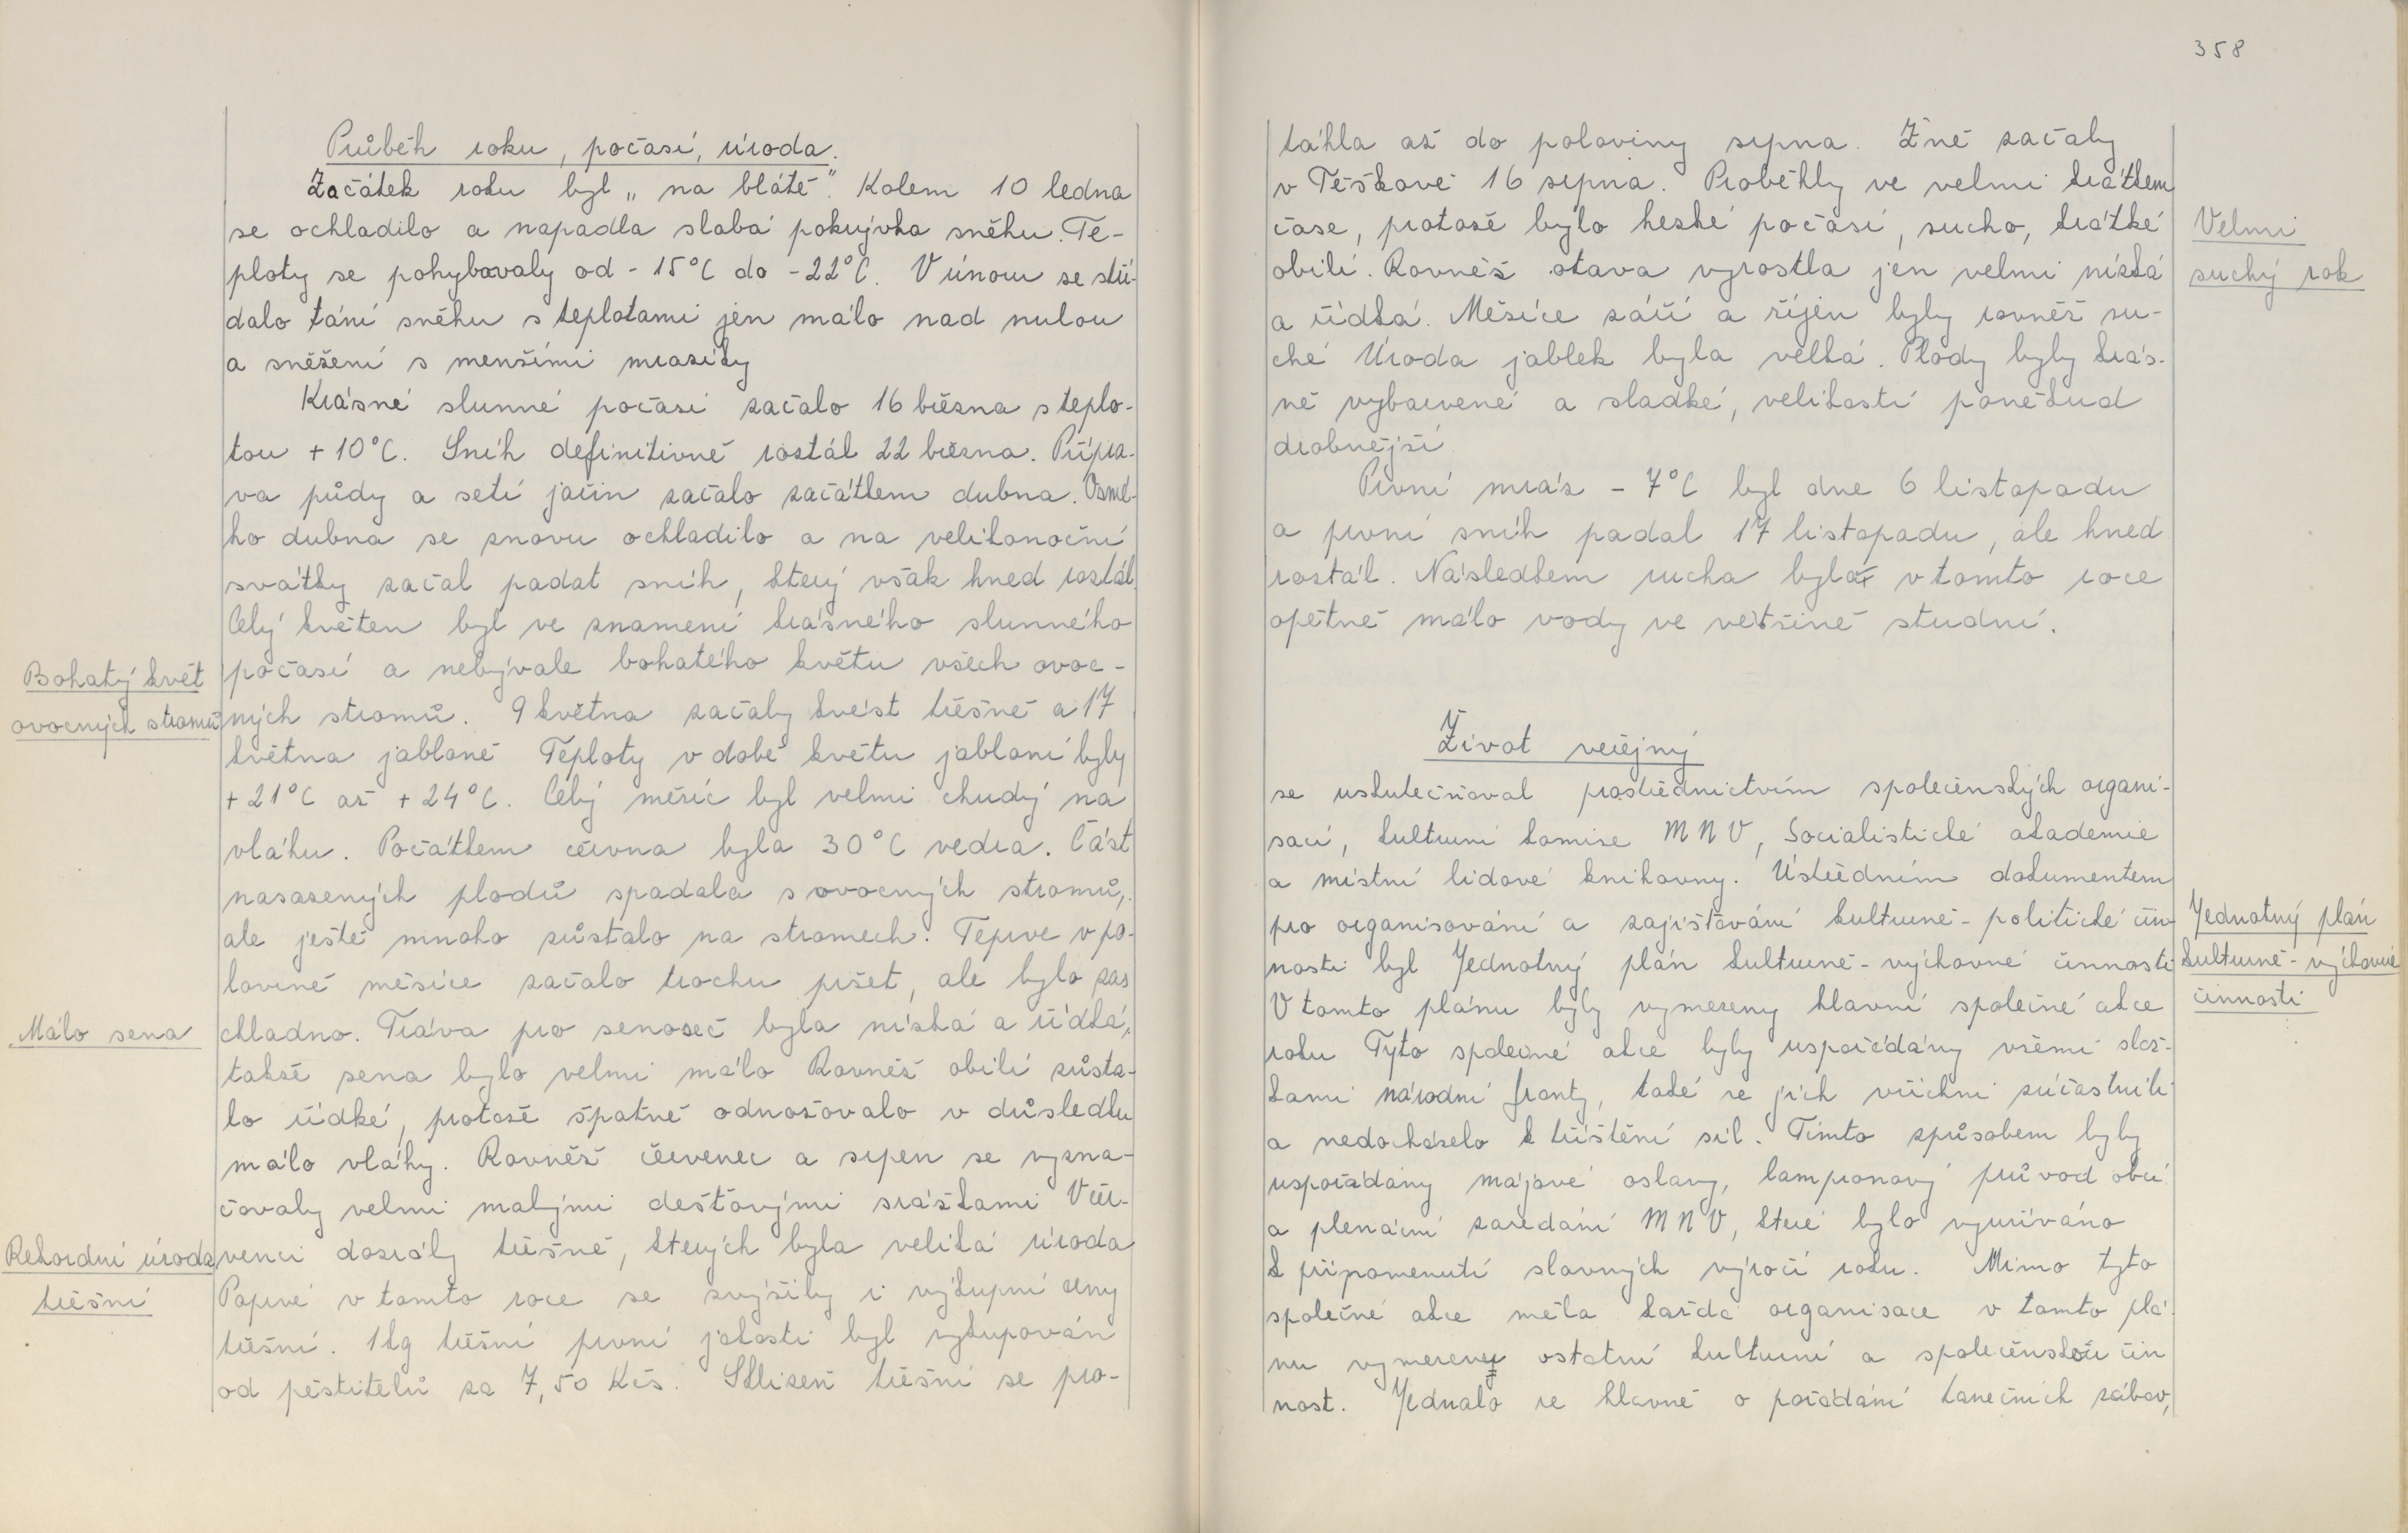 Průběh roku, počasí, úroda.
Začátek roku byl „na blátě". Kolem 10 ledna
se ochladilo a napadla slabá pokrývka sněhu. Te-
ploty se pohybovaly od - 15°C do - 22°C. V únoru se stří-
dalo tání sněhu s teplotami jen málo nad nulou
a sněžení s menšími mrazíky
Krásné slunné počasí začalo 16 března s teplo-
tou + 10°C. Sníh definitivně roztál 22 března. Přípra-
va půdy a setí jařin začalo začátkem dubna. Osmé-
ho dubna se znovu ochladilo a na velikonoční
svátky začal padat sníh, který však hned roztál.
Celý květen byl ve znamení krásného slunného
Bohatý květ
ovocných stromů
počasí a nebývale bohatého květu všech ovoc-
ných stromů. 9 května začaly kvést třešně a 17
května jabloně Teploty v době květu jabloní byly
+ 21°C až + 24°C. Celý měsíc byl velmi chudý na
vláhu. Počátkem června byla 30°C vedra. Část
nasazených plodů spadala s ovocných stromů,
ale ještě mnoho zůstalo na stromech. Teprve v po-
lovině měsíce začalo trochu pršet, ale bylo zas
Málo sena
chladno. Tráva pro senoseč byla nízká a řídká,
takže sena bylo velmi málo Rovněž obilí zůsta-
lo řídké, protože špatně odnožovalo v důsledku
málo vláhy. Rovněž červenec a srpen se vyzna-
čovaly velmi malými dešťovými srážkami V čer-
Rekordní úroda
třešní
venci dozrály třešně, kterých byla veliká úroda
Poprvé v tomto roce se zvýšily i výkupní ceny
třešní. 1kg třešní první jakosti byl vykupován
od pěstitelů za 7,50 Kčs. Sklizeň třešní se pro-
358
táhla až do poloviny srpna. Žně začaly
v Těškově 16 srpna. Proběhly ve velmi krátkém
čase, protože bylo hezké počasí, sucho, krátké
Velmi
suchý rok
obilí. Rovněž otava vyrostla jen velmi nízká
a řídká. Měsíce září a říjen byly rovněž su-
ché Úroda jablek byla velká. Plody byly krás-
ně vybarvené a sladké, velikostí poněkud
drobnější
První mráz - 7°C byl dne 6 listopadu
a první sníh padal 17 listopadu, ale hned
roztál. Následkem sucha bylo v tomto roce
opětně málo vody ve většině studní.
Život veřejný
se uskutečňoval prostřednictvím společenských organi-
sací, kulturní komise MNV, Socialistické akademie
a místní lidové knihovny. Ústředním dokumentem
Jednotný plán
kulturně-výchovné
činnosti
pro organisování a zajišťování kulturně-politické čin-
nosti byl Jednotný plán kulturně-výchovné činnosti
V tomto plánu byly vymezeny hlavní společné akce
roku Tyto společné akce byly uspořádány všemi slož-
kami národní fronty, také se jich všichni zúčastnili
a nedocházelo k tříštění sil. Tímto způsobem byly
uspořádány májové oslavy, lampionový průvod obcí
a plenární zasedání MNV, které bylo využíváno
k připomenutí slavných výročí roku. Mimo tyto
společné akce měla každá organisace v tomto plá-
nu vymezeny ostatní kulturní a společenskou čin
nost. Jednalo se hlavně o pořádání tanečních zábav,